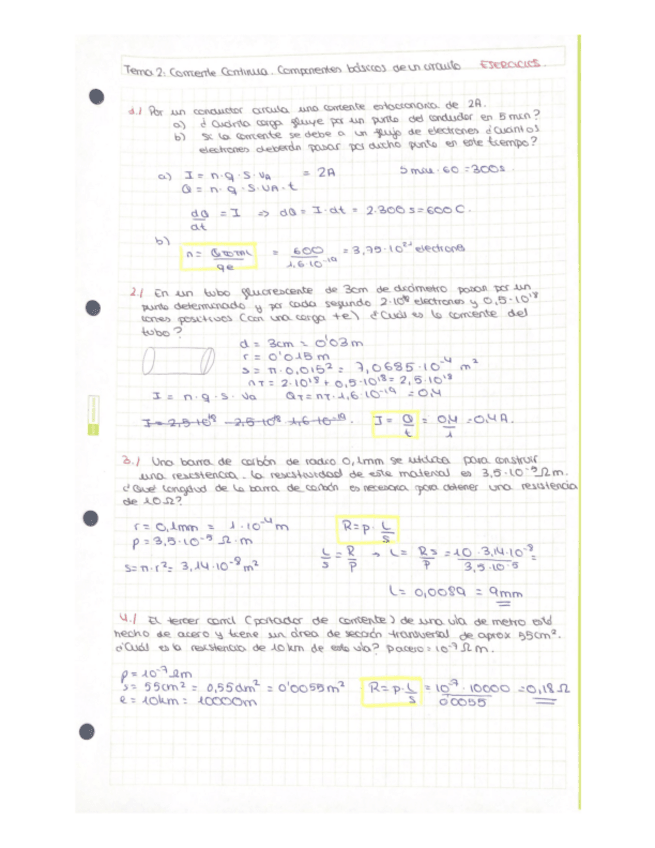 Tema 2: Corriente Continua. Componentes básicos de un circuito EJERCICIOS.
1.| Por un conductor circula una corriente estacionaria de 2A.
a) ¿Cuánta carga fluye por un punto del conductor en 5 min?
b) Si la corriente se debe a un flujo de electrones ¿Cuántos
electrones deberán pasar por dicho punto en este tiempo?
a) I = n·q·S·VA = 2A 5 min · 60 = 300s.
Q = n·q·S·VA·t
dQ/dt = I ⇒ dQ = I·dt = 2·300s = 600C.
b)
n = Qtotal/qe = 600/1,6·10⁻¹⁹ = 3,75·10²¹ electrones
2.| En un tubo fluorescente de 3cm de diámetro pasan por un
punto determinado y por cada segundo 2·10¹⁸ electrones y 0,5·10¹⁸
iones positivos (con una carga +e) ¿Cuál es la corriente del
tubo?
d = 3cm = 0'03m
r = 0'015m
s = π·0,015² = 7,0685·10⁻⁴ m²
nT = 2·10¹⁸ + 0,5·10¹⁸ = 2,5·10¹⁸
I = n·q·S·Va QT = nT·1,6·10⁻¹⁹ = 0,4
I = Q/t = 0,4/1 = 0,4A.
3.| Una barra de carbón de radio 0,1mm se utiliza para construir
una resistencia. La resistividad de este material es 3,5·10⁻⁵Ωm.
¿Qué longitud de la barra de carbón es necesaria para obtener una resistencia
de 10Ω?
r = 0,1mm = 1·10⁻⁴m R = ρ·L/S
ρ = 3,5·10⁻⁵ Ω·m
L/S = R/ρ → L = RS/ρ = 10·3,14·10⁻⁸/3,5·10⁻⁵ =
S = π·r² = 3,14·10⁻⁸m²
L = 0,0089 = 9mm
4.| El tercer carril (portador de corriente) de una vía de metro está
hecho de acero y tiene un área de sección transversal de aprox. 55cm².
¿Cuál es la resistencia de 10km de esta vía? ρacero = 10⁻⁷Ωm.
ρ = 10⁻⁷Ωm
s = 55cm² = 0,55dm² = 0'0055m² R = ρ·L/S = 10⁻⁷·10000/0'0055 = 0,18Ω
l = 10km = 10000m